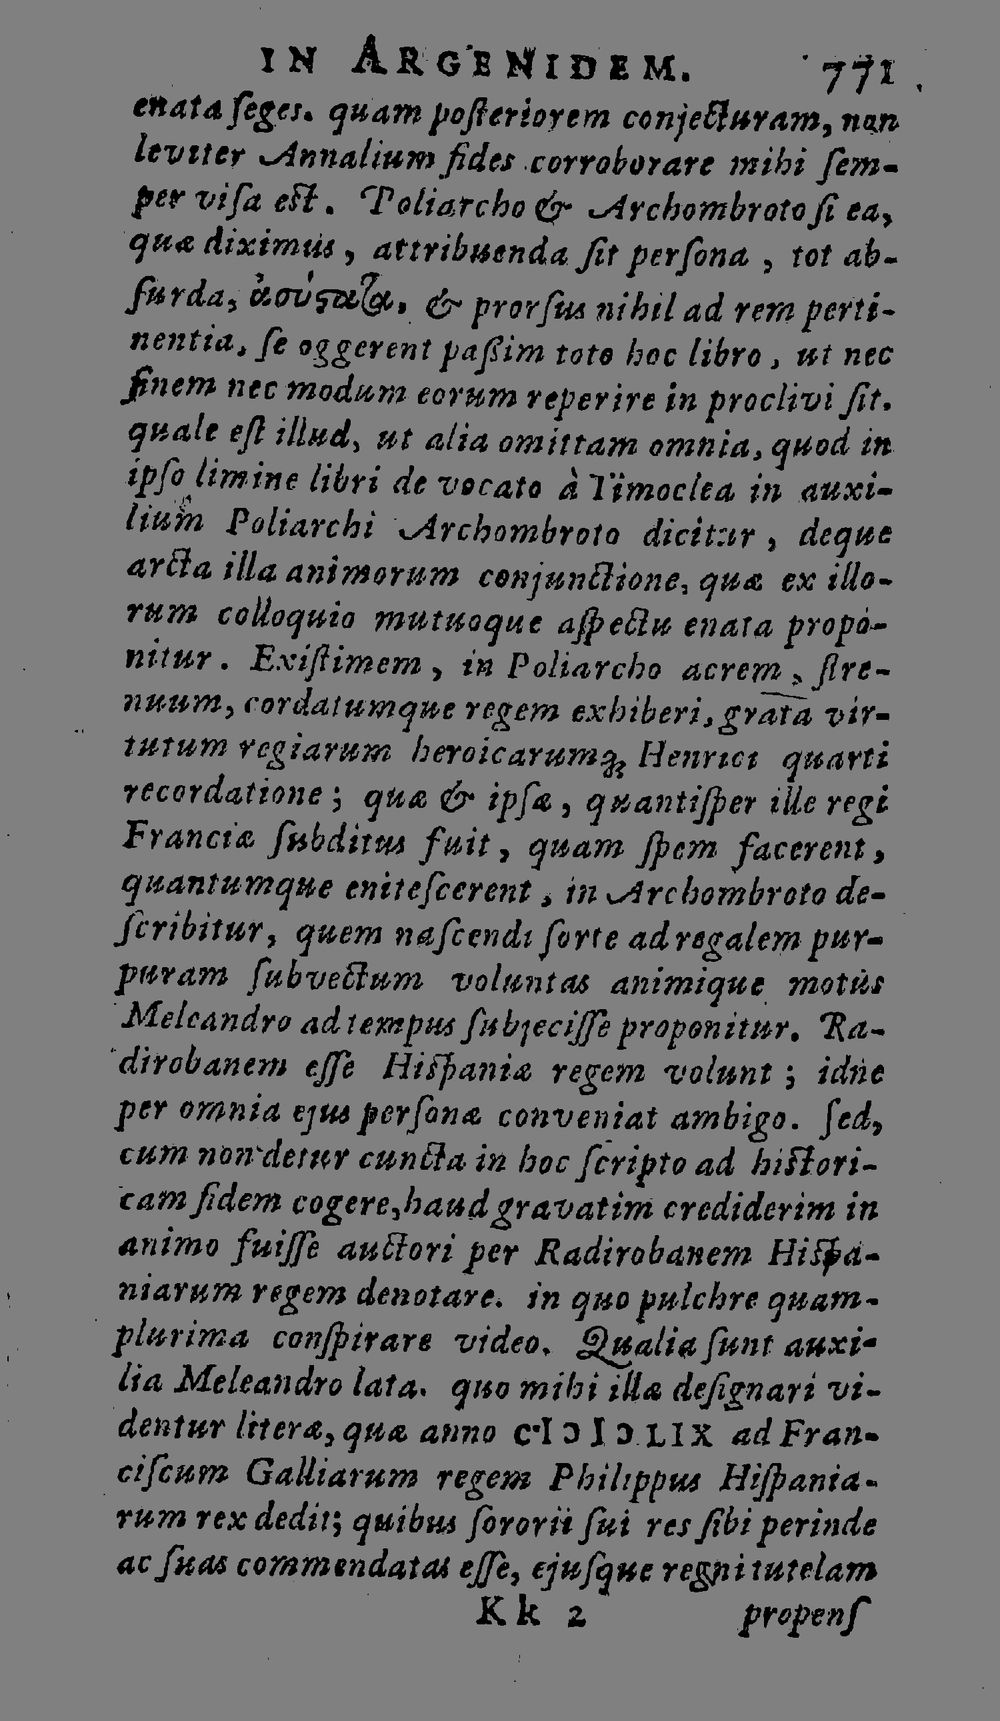 IN ARGENIDEM. 771
enata ſeges. quam poſteriorem conjecturam, non
leviter Annalium fides corroborare mihi ſem-
per viſa eſt. Poliarcho & Archombroto ſi ea,
quæ diximus, attribuenda ſit perſona, tot ab-
ſurda, ἀσύςατα, & prorſus nihil ad rem perti-
nentia, ſe oggerent paßim toto hoc libro, ut nec
finem nec modum eorum reperire in proclivi ſit.
quale eſt illud, ut alia omittam omnia, quod in
ipſo limine libri de vocato à Timoclea in auxi-
lium Poliarchi Archombroto dicitur, deque
arcta illa animorum conjunctione, quæ ex illo-
rum colloquio mutuoque aſpectu enata propo-
nitur. Exiſtimem, in Poliarcho acrem, ſtre-
nuum, cordatumque regem exhiberi, grata vir-
tutum regiarum heroicarumq; Henrici quarti
recordatione; quæ & ipſæ, quantiſper ille regi
Franciæ ſubditus fuit, quam ſpem facerent,
quantumque eniteſcerent, in Archombroto de-
ſcribitur, quem naſcendi ſorte ad regalem pur-
puram ſubvectum voluntas animique motus
Meleandro ad tempus ſubjeciſſe proponitur. Ra-
dirobanem eſſe Hiſpaniæ regem volunt; idne
per omnia ejus perſonæ conveniat ambigo. ſed,
cum non detur cuncta in hoc ſcripto ad hiſtori-
cam fidem cogere, haud gravatim crediderim in
animo fuiſſe auctori per Radirobanem Hiſpa-
niarum regem denotare. in quo pulchre quam-
plurima conſpirare video. Qualia ſunt auxi-
lia Meleandro lata. quo mihi illæ deſignari vi-
dentur literæ, quæ anno CIↃIↃLIX ad Fran-
ciſcum Galliarum regem Philippus Hiſpania-
rum rex dedit; quibus ſororii ſui res ſibi perinde
ac ſuas commendatas eſſe, ejuſque regni tutelam
Kk 2 propenſ